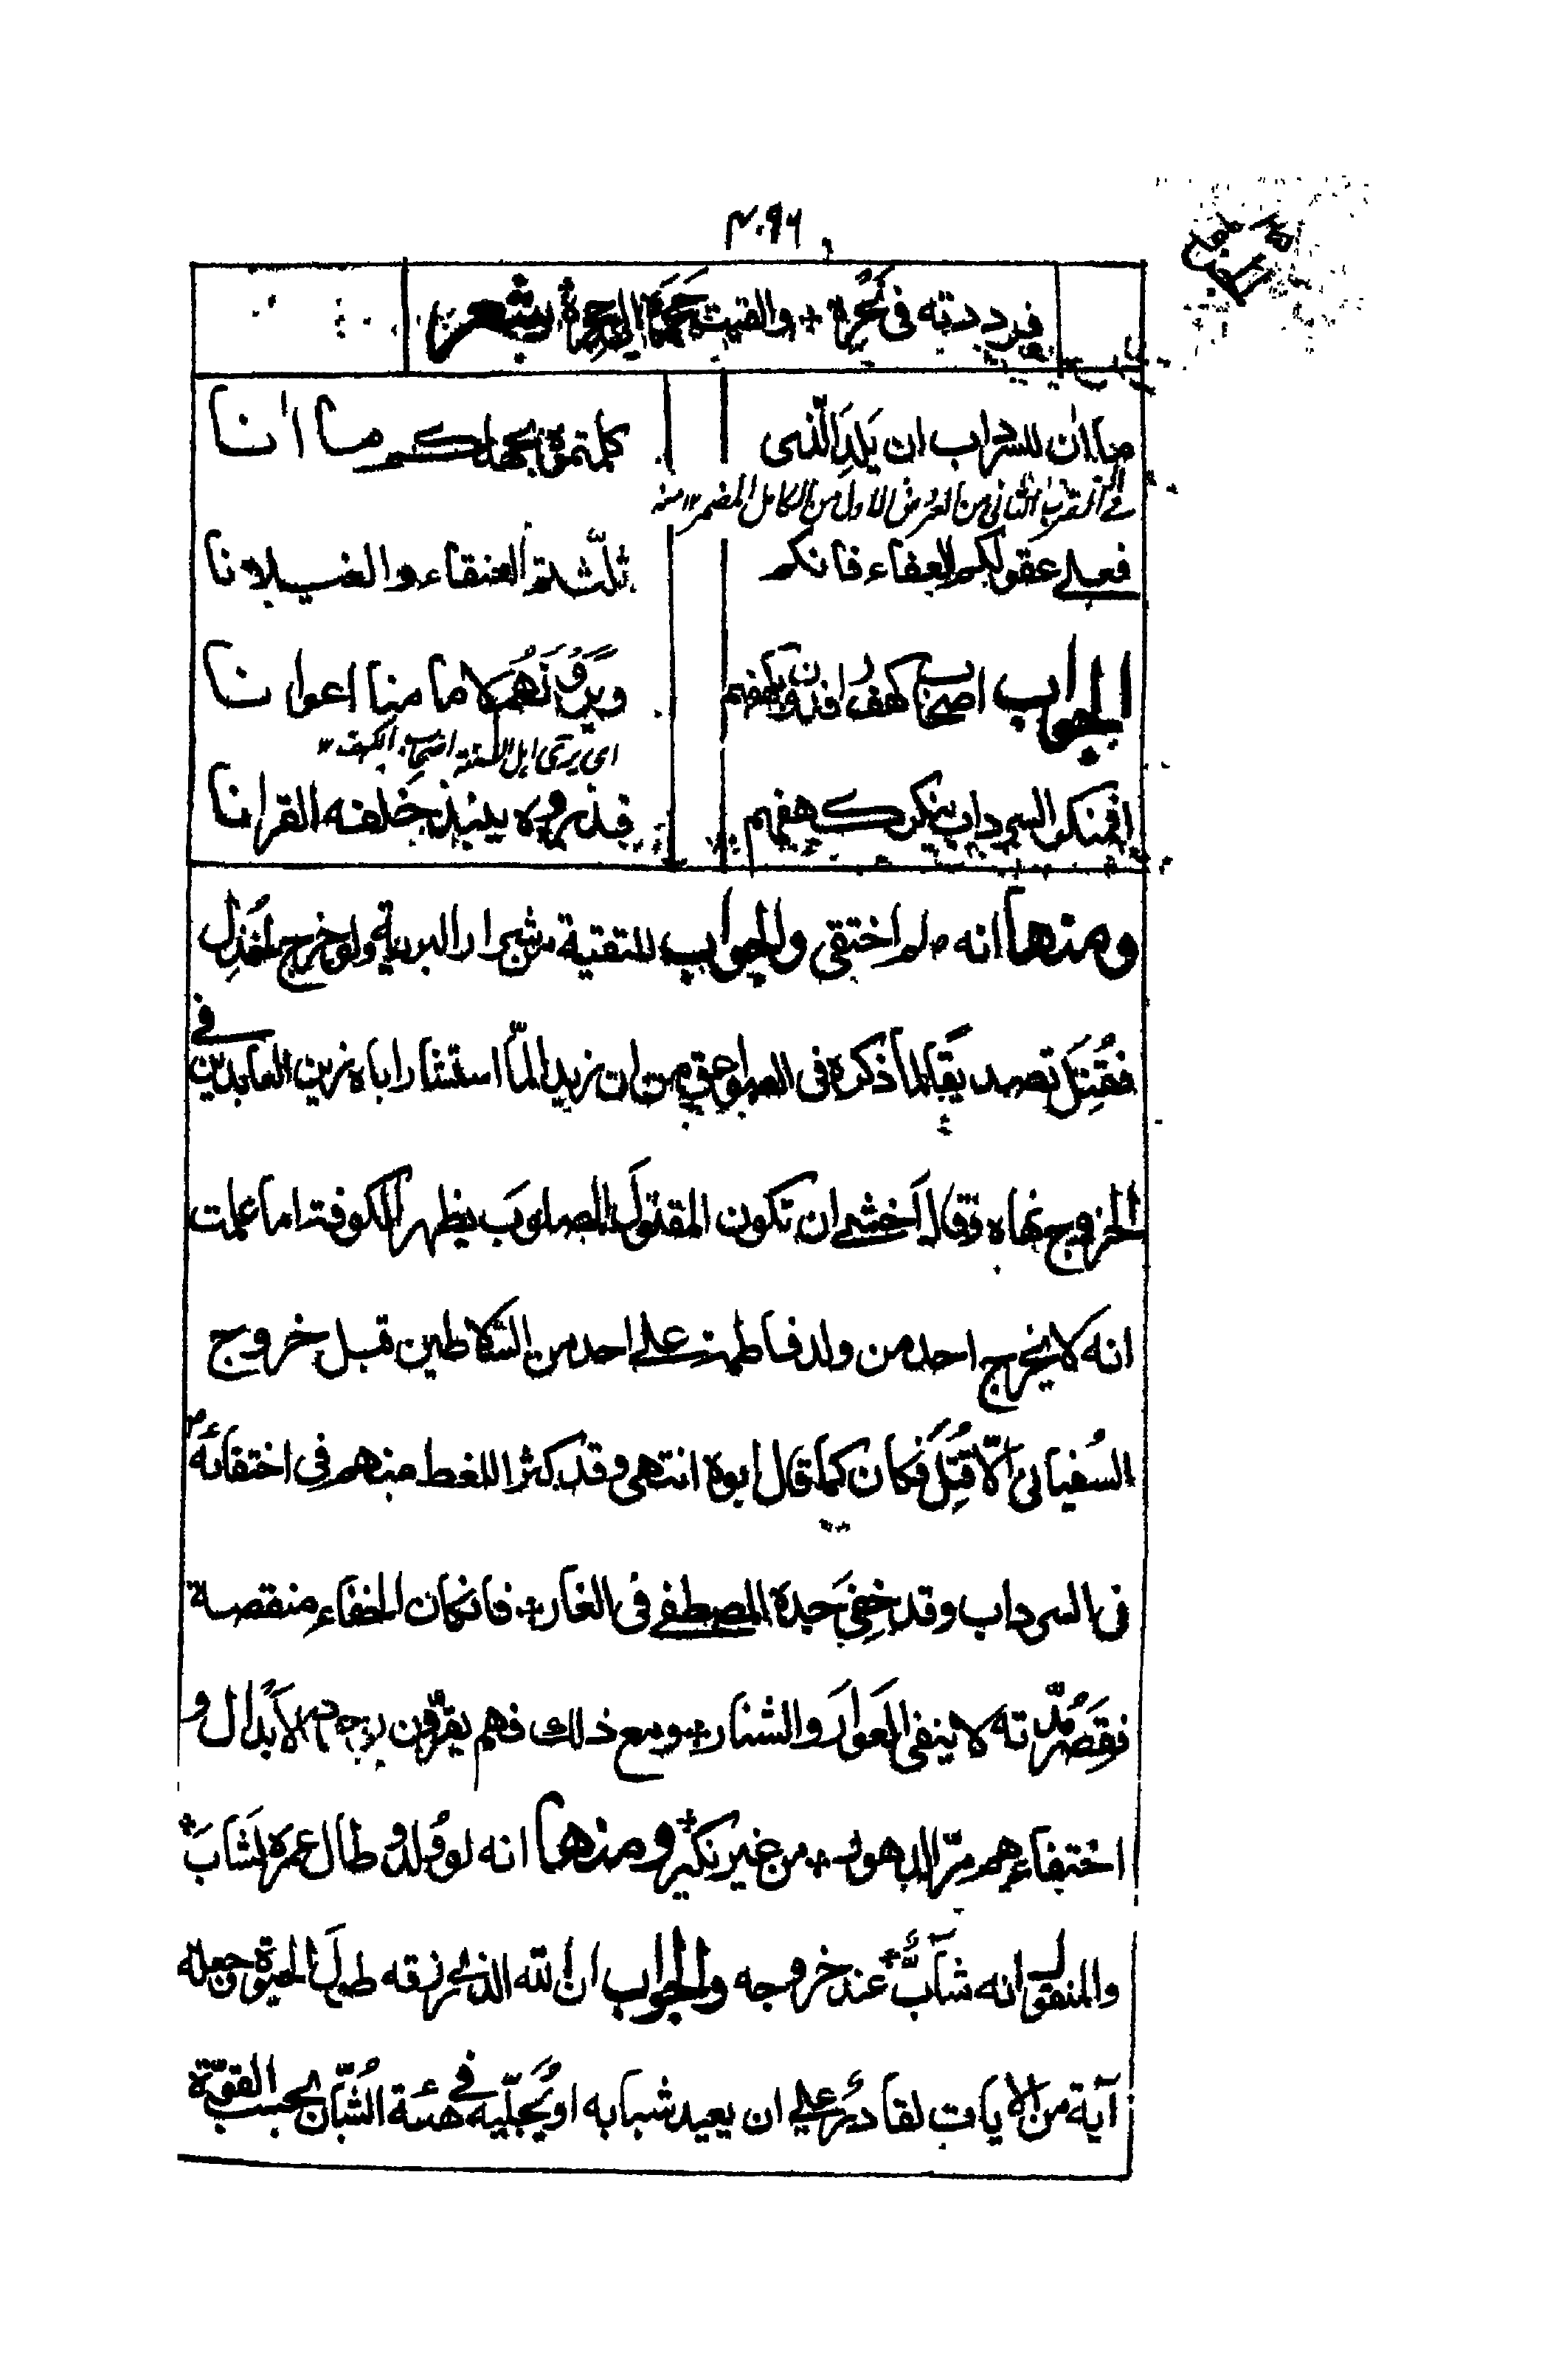 فرددته فى نَحْرِه + والقيت حجره الى حجره بشعر
ما اٰن للسرداب ان يلد الّذى كلمتموه بجهلكم ما اٰنا
من الضرب الثانى من العروض الاول من الكامل المضمر ١٢ منه
فعلى عقولكم العفاء فانكم ثلّثتم العنقاء والغيلانا
الجواب اصحاب كهف وَيَرَوْنَهُمْ لامامنا اعوانا
اى يرى اهل السنة اصحاب الكهف ١٢
افمنكر السرداب ينكر كهفهم فذروه ينبذ خلفه القرانا
ومنها انه لم اختفى والجواب للتقية من شرار البرية ولو خرج لخُذِل
فقُتِل تصديقا لما ذكره فى الصواعق من ان زيدا لمّا استشار اباه زين العابدين فى
الخروج نهاه وقال اَخشى ان تكون المقتولَ المصلوبَ بظهر الكوفة اما علمت
انه لا يخرج احد من ولد فاطمة على احد من السلاطين قبل خروج
السُفيانى الّا قُتِلَ فكان كما قال ابوه انتهى وقد كثر اللغط منهم فى اختفائه
فى السرداب وقد خفِى جده المصطفى فى الغار + فانكان الخفاء منقصة
فقِصَرُ مدّته لا ينفى العَوارَ والشنار + ومع ذلك فهم يقرّون الاَبدال و
اختفاءِهم مرّ الدهور + من غير نكير + ومنها انه لو وُلد وطال عمره لشابَ +
والمنقول انه شابٌّ عند خروجه والجواب ان الله الذى رزقه طولَ الحيوة وجعله
آية من الايات لقادر على ان يعيد شبابه او يُجلّيه فى هئة الشُبّان بحسب القوّة